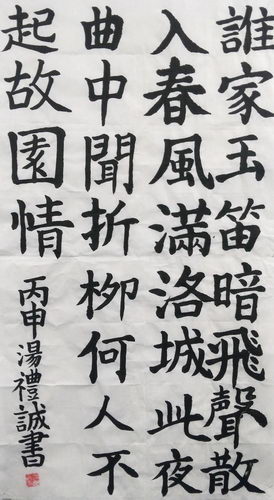 誰家玉笛暗飛聲散
入春風滿洛城此夜
曲中聞折柳何人不
起故園情
丙申湯禮誠書